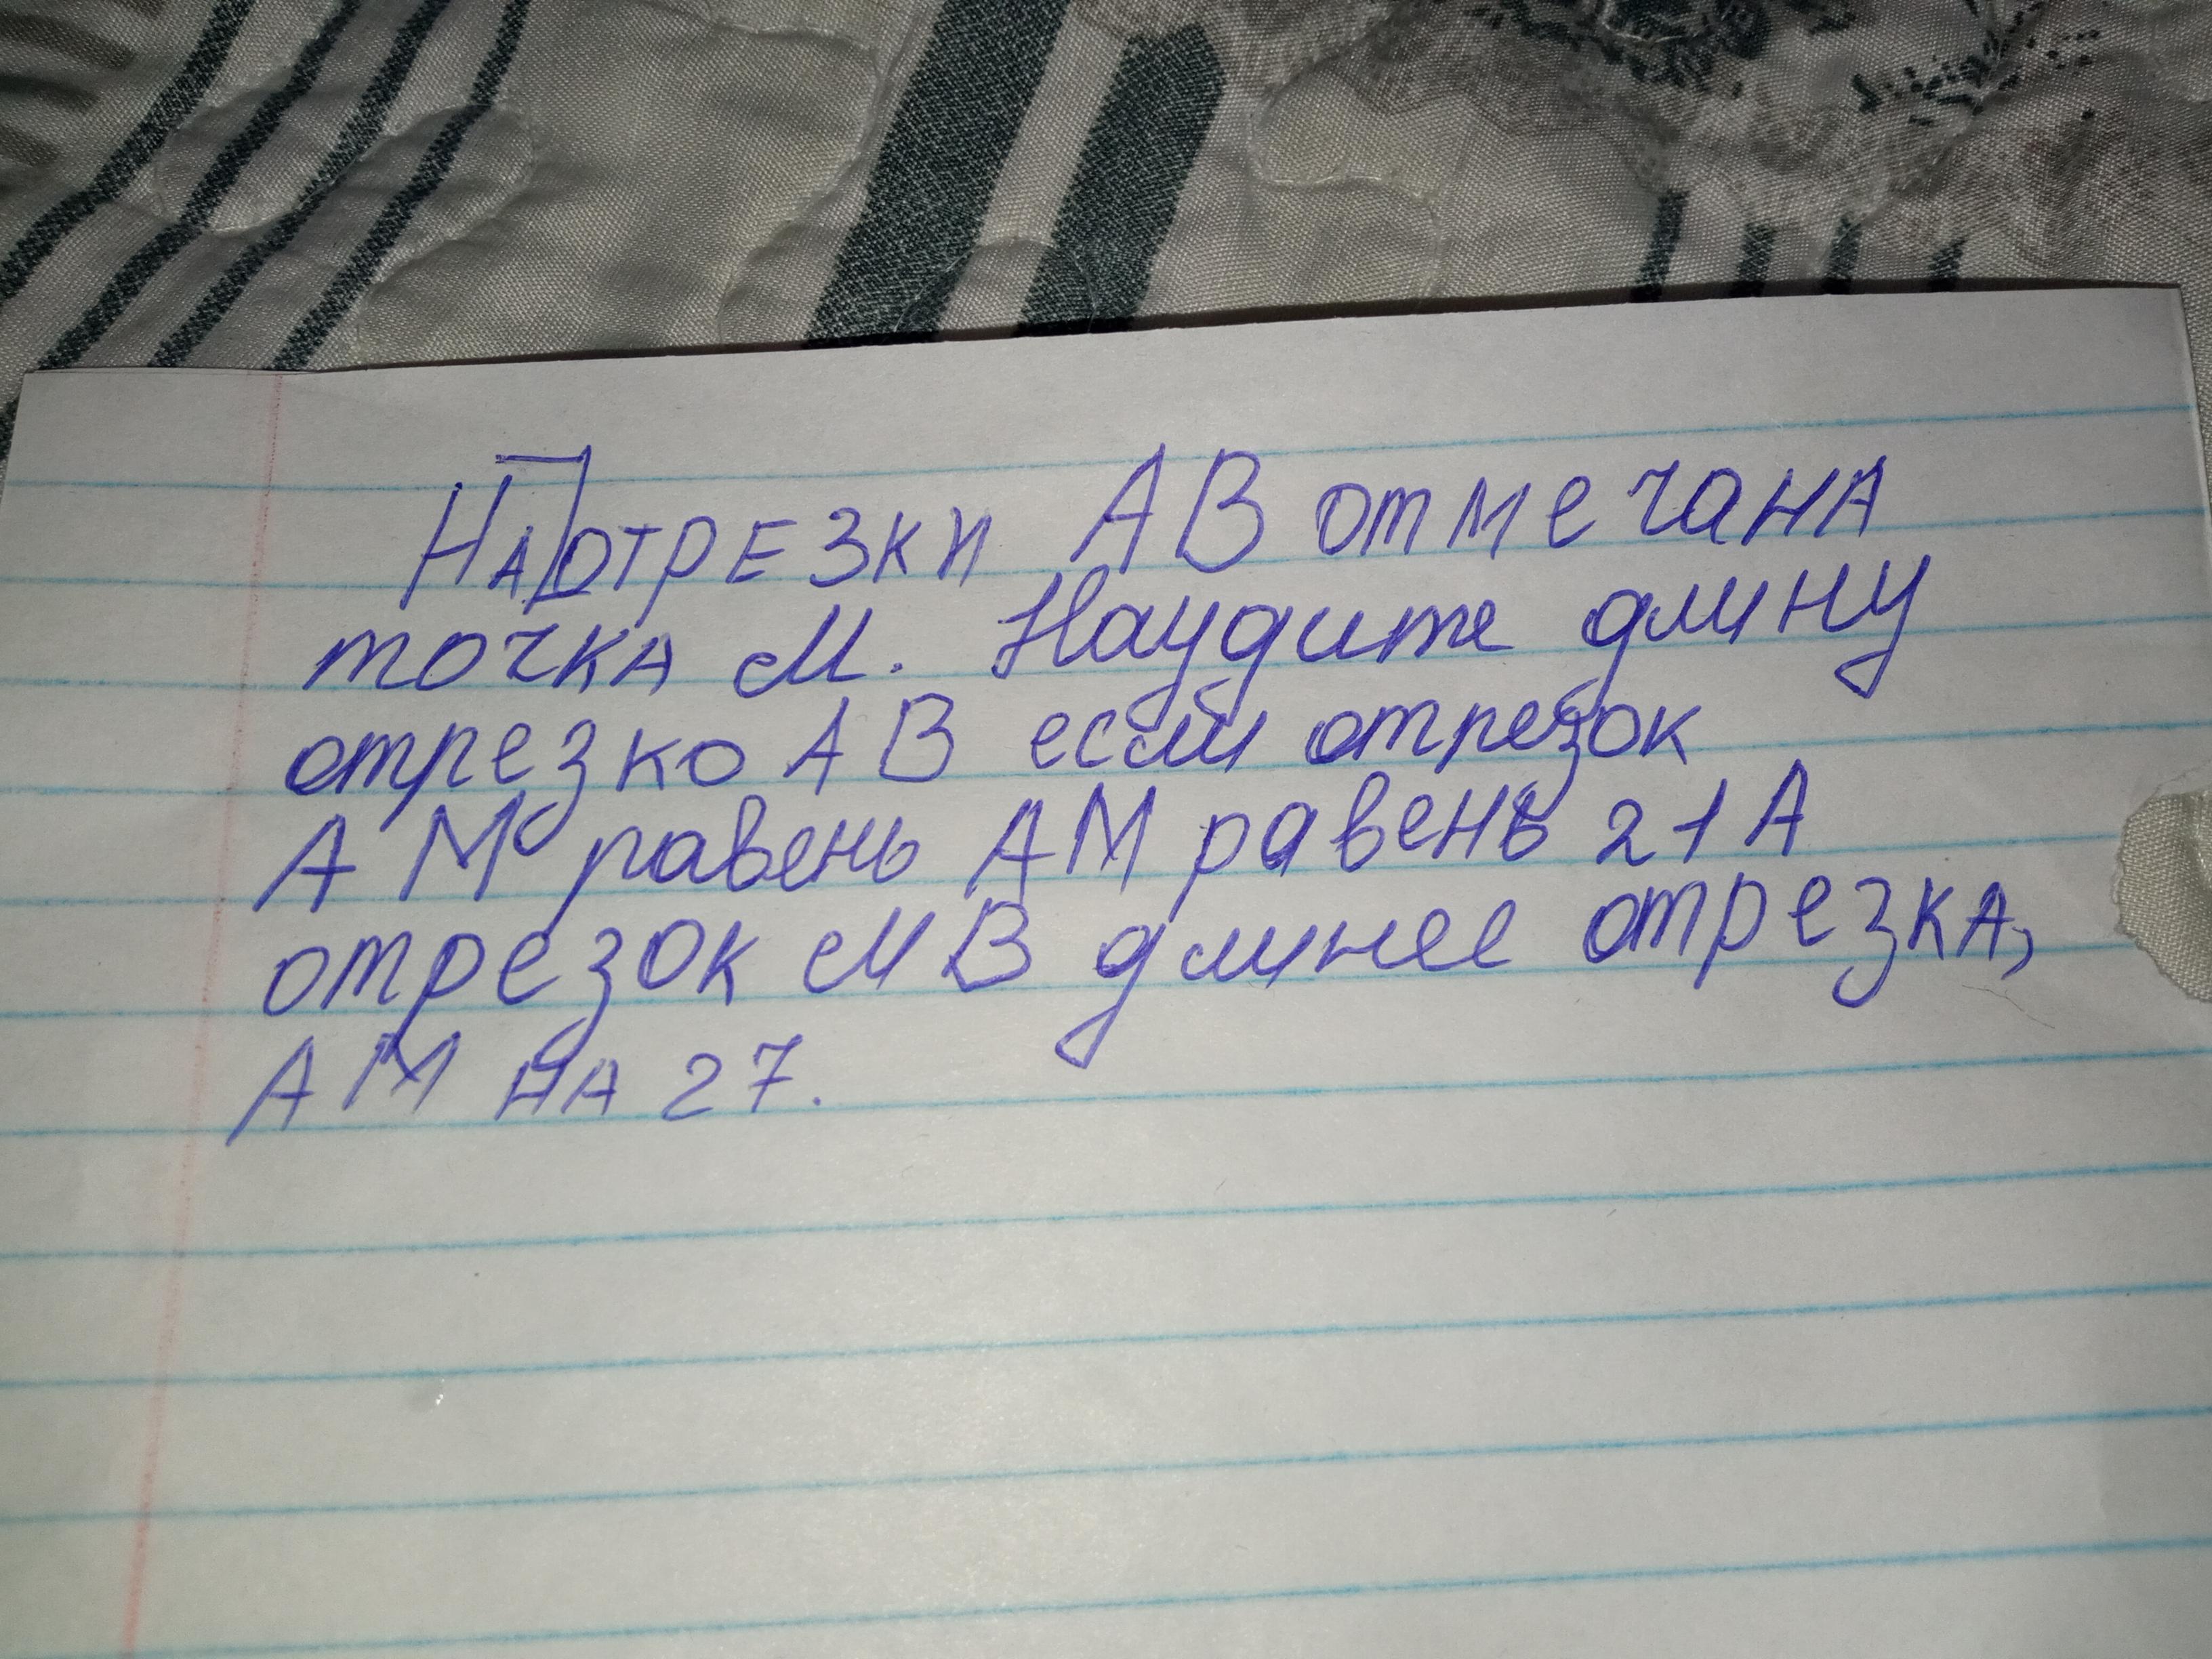 На отрезки АВ отмечана
точка М. Наудите длину
отрезко АВ если отрезок
АМ равень АМ равень 21 А
отрезок МВ длинее отрезка,
АМ на 27.